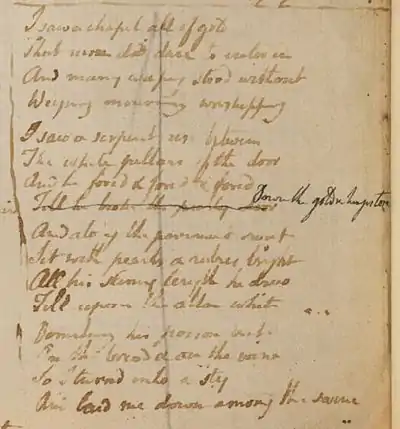 I saw a chapel all of gold
That none did dare to enter in
And many weeping stood without
Weeping mourning worshipping
I saw a serpent rise between
The white pillars of the door
And he forcd & forcd & forcd
Till he broke the pearly door Down the golden hinges tore
And along the pavement sweet
Set with pearls & rubies bright
All his slimy length he drew
Till upon the altar white
Vomiting his poison out
On the bread & on the wine
So I turnd into a sty
And laid me down among the swine